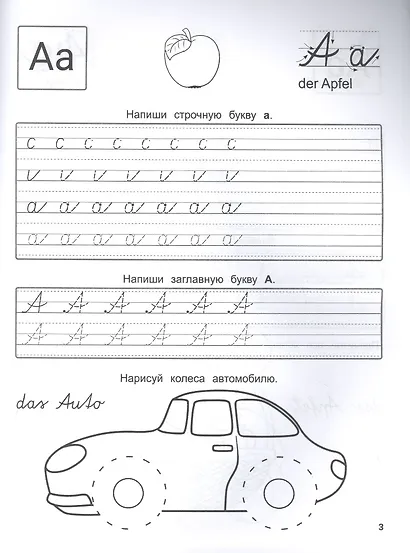 Aa
A a
der Apfel
Напиши строчную букву а.
c c c c c c c c
ı i i i i i i
a a a a a a a
a a a a a a a
Напиши заглавную букву А.
A A A A A A
A A A A A A
Нарисуй колеса автомобилю.
das Auto
3